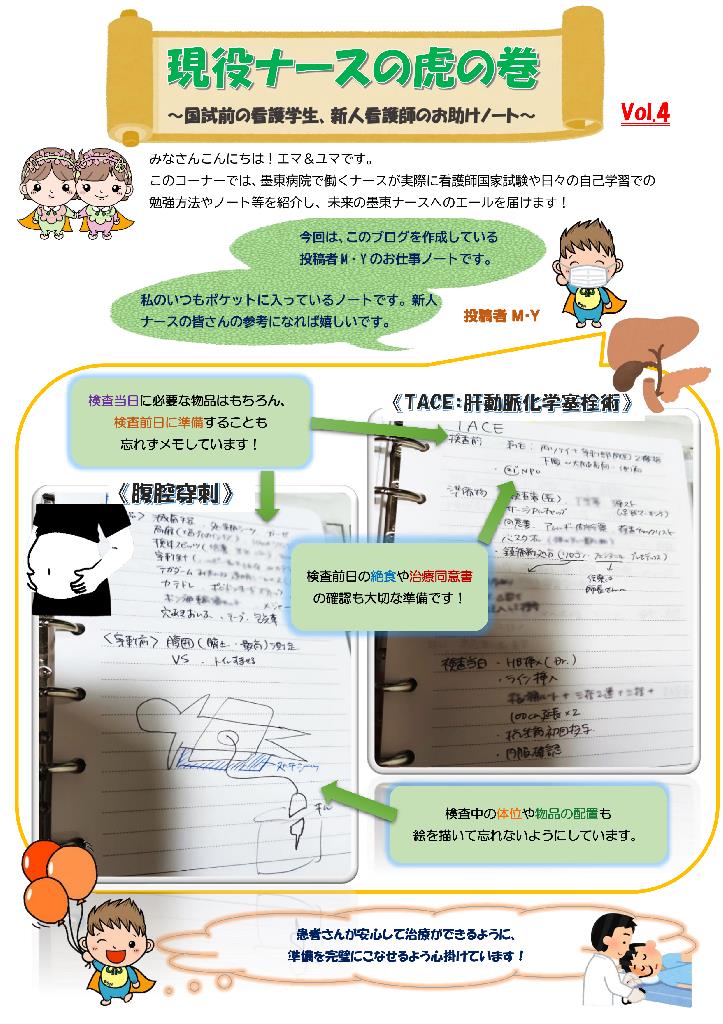 現役ナースの虎の巻
～国試前の看護学生、新人看護師のお助けノート～
Vol.4
みなさんこんにちは！エマ＆ユマです。
このコーナーでは、墨東病院で働くナースが実際に看護師国家試験や日々の自己学習での
勉強方法やノート等を紹介し、未来の墨東ナースへのエールを届けます！
今回は、このブログを作成している
投稿者M・Yのお仕事ノートです。
私のいつもポケットに入っているノートです。新人
ナースの皆さんの参考になれば嬉しいです。
投稿者 M・Y
検査当日に必要な物品はもちろん、
検査前日に準備することも
忘れずメモしています！
《TACE：肝動脈化学塞栓術》
TACE
検査前
準備物
同意書
バスタオル
検査当日・HB挿入(Dr.)
・ライン挿入
100cm延長×2
・抗生剤初回投与
・同脈確認
《腹腔穿刺》
検査前日の絶食や治療同意書
の確認も大切な準備です！
＜穿刺前＞腹囲
VS
検査中の体位や物品の配置も
絵を描いて忘れないようにしています。
患者さんが安心して治療ができるように、
準備を完璧にこなせるよう心掛けています！